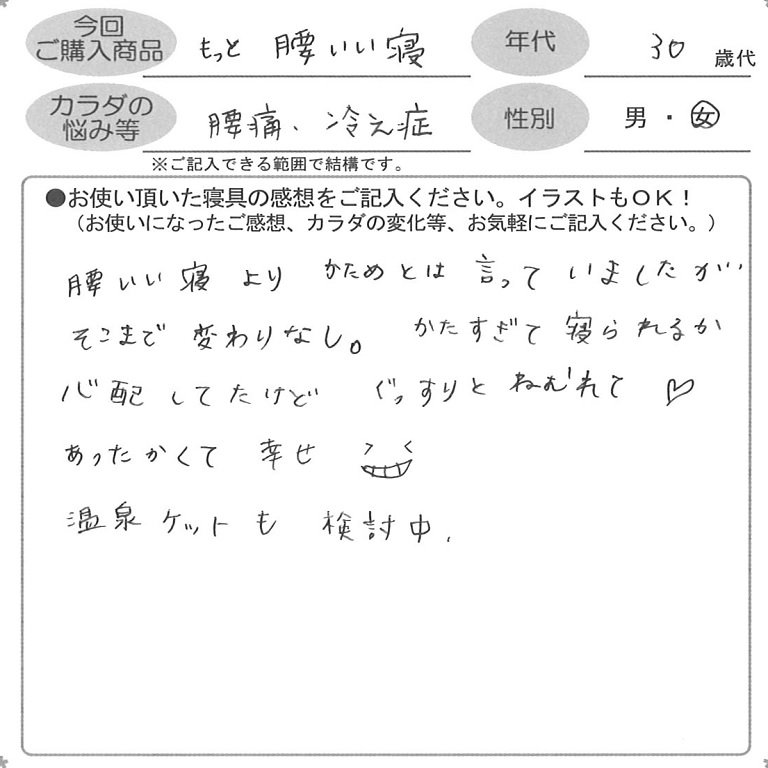 今回
ご購入商品
もっと 腰いい寝
年代
30 歳代
カラダの
悩み等
腰痛、冷え症
性別
男・女
※ご記入できる範囲で結構です。
●お使い頂いた寝具の感想をご記入ください。イラストもOK！
（お使いになったご感想、カラダの変化等、お気軽にご記入ください。）
腰いい寝 より かためとは 言って いましたが…
そこまで 変わりなし。 かたすぎて 寝られるか
心配してたけど ぐっすりと ねむれて♡
あったかくて 幸せ
温泉ケットも 検討中.